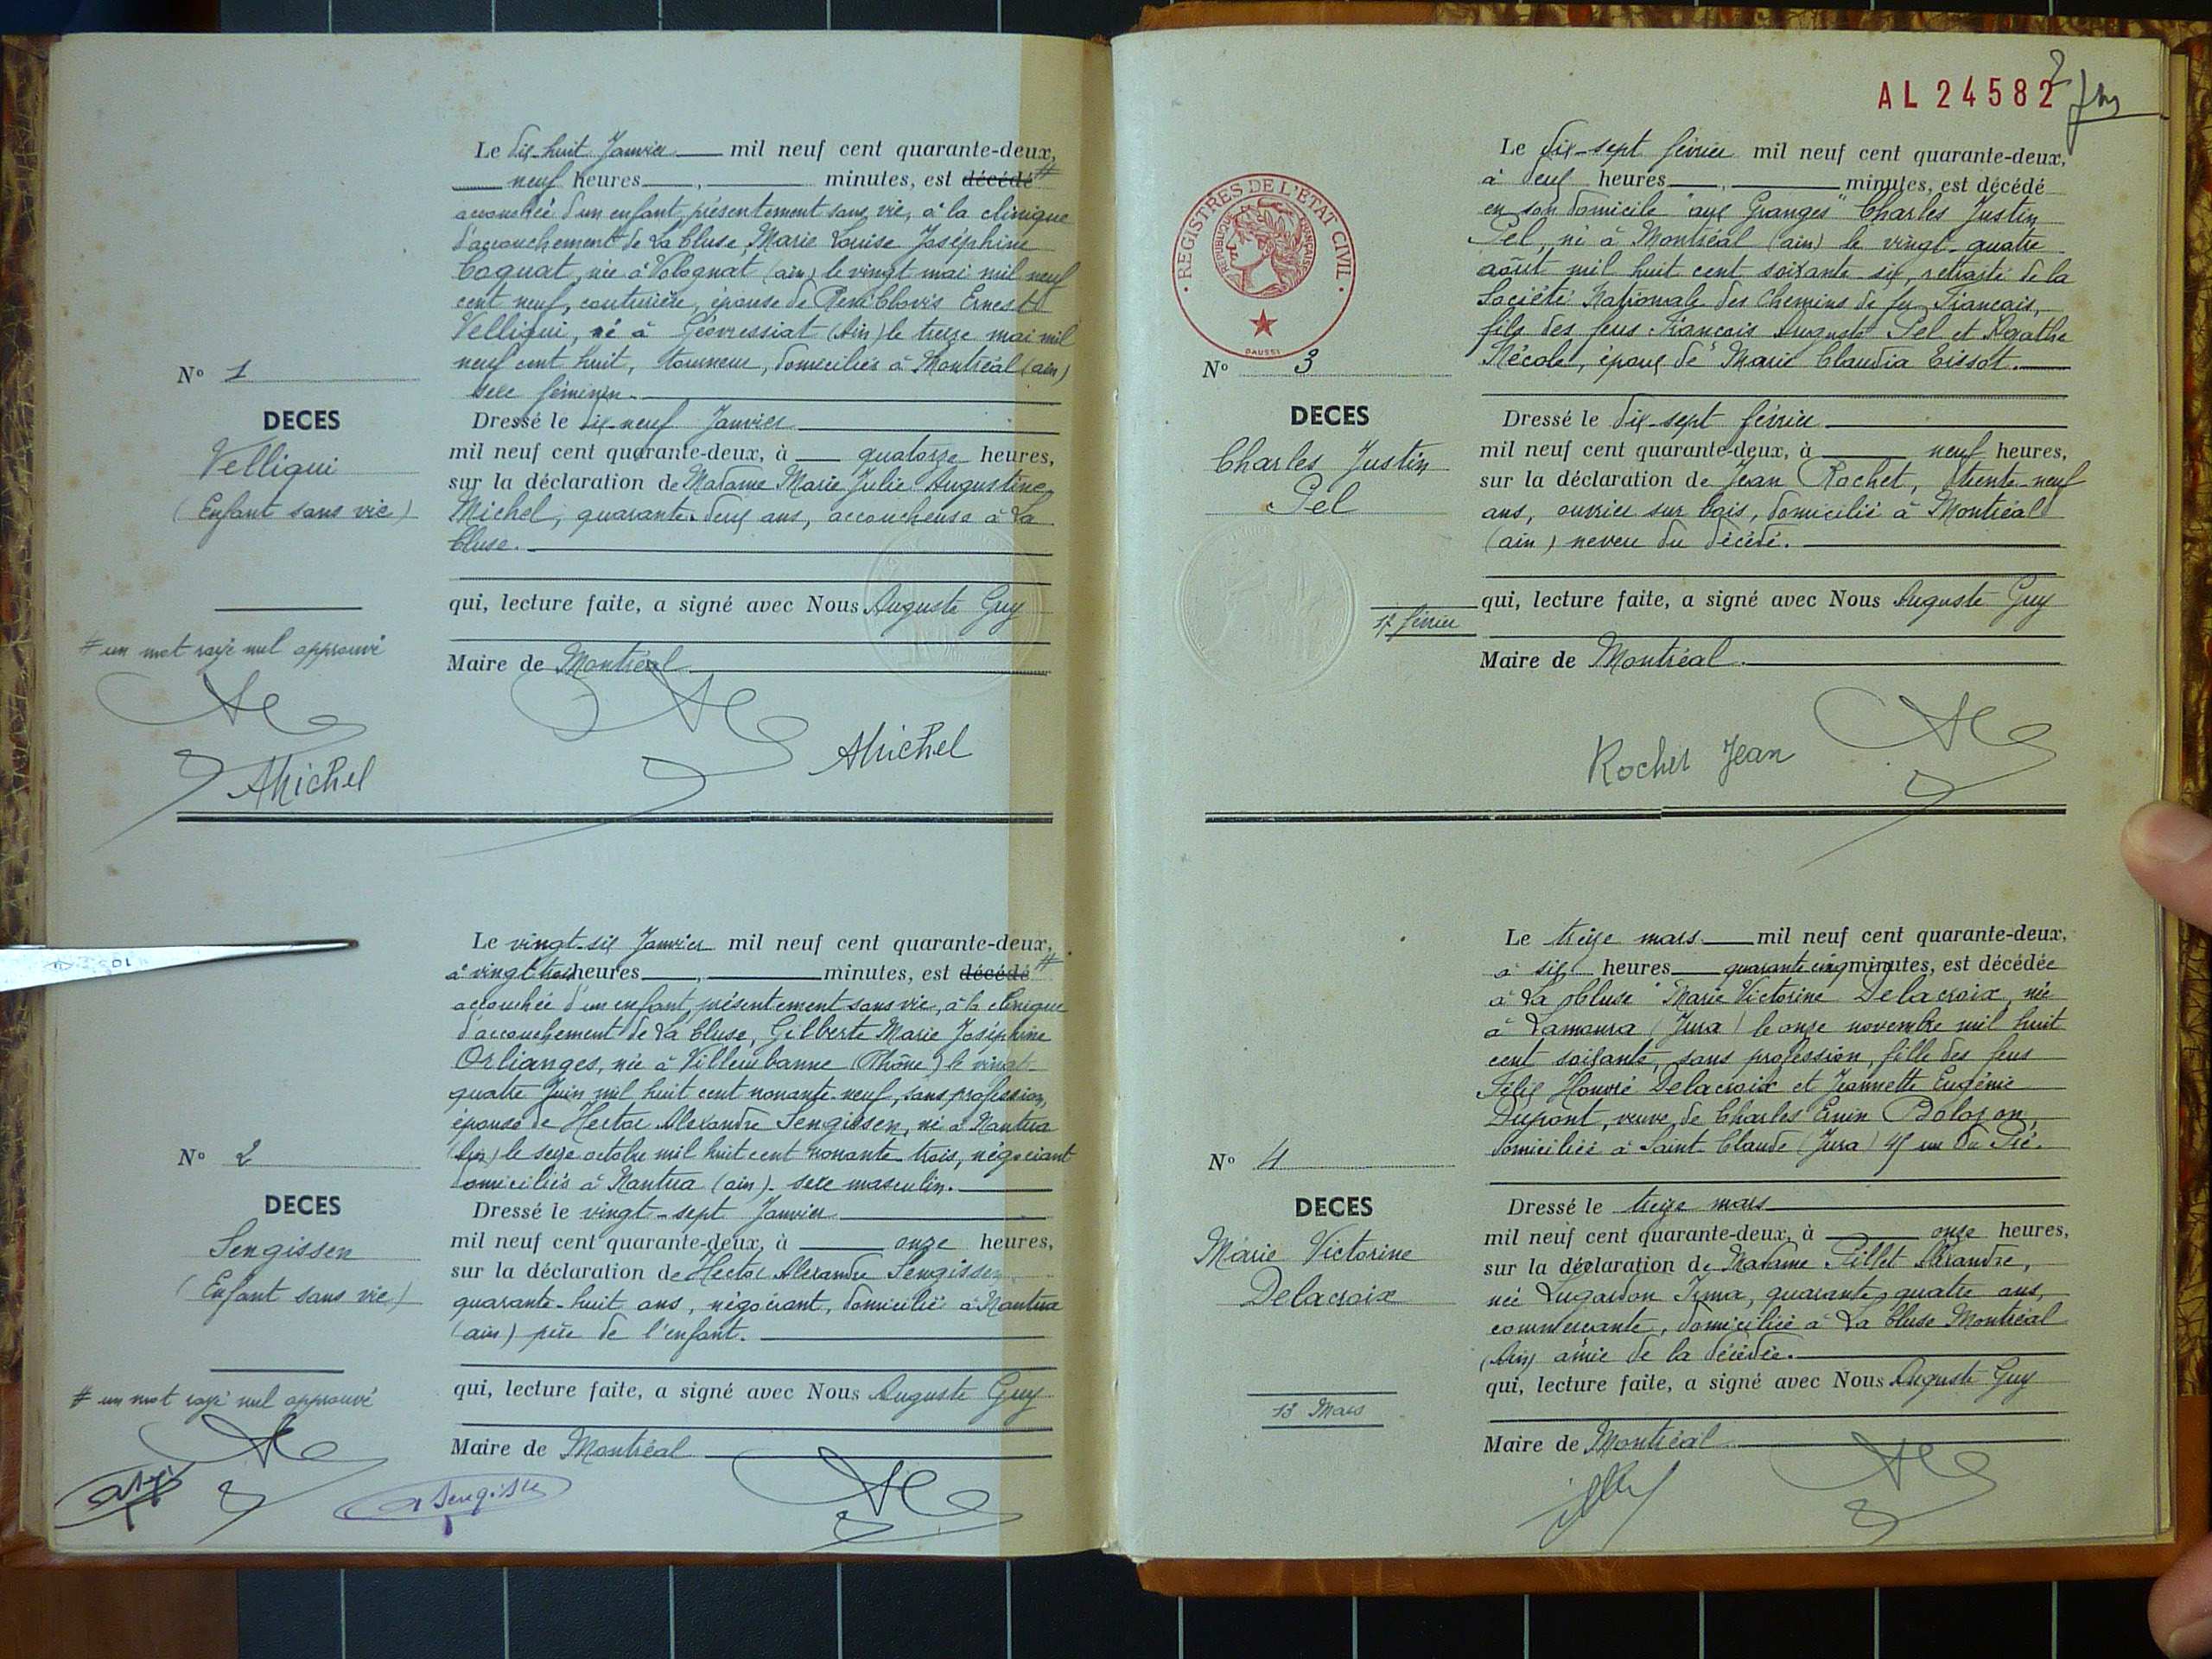 Le dix-huit Janvier mil neuf cent quarante-deux,
neuf heures, minutes, est décédé #
accouchée d'un enfant présentement sans vie, à la clinique
d'accouchement de La Cluse, Marie Louise Joséphine
Coquat, née à Volognat (ain) le vingt mai mil neuf
cent neuf, couturière, épouse de René Clovis Ernest
Velliqui, né à Géovressiat (Ain) le treize mai mil
neuf cent huit, tourneur, domiciliés à Montréal (ain)
sexe féminin.
N° 1
DECES
Velliqui
(Enfant sans vie)
Dressé le dix-neuf Janvier
mil neuf cent quarante-deux, à quatorze heures,
sur la déclaration de Madame Marie Julie Augustine
Michel, quarante-deux ans, accoucheuse à La
Cluse.
qui, lecture faite, a signé avec Nous Auguste Guy
# un mot rayé nul approuvé
Maire de Montréal
Michel
Michel
Le vingt-six Janvier mil neuf cent quarante-deux,
à vingt trois heures, minutes, est décédé #
accouchée d'un enfant, présentement sans vie, à la clinique
d'accouchement de La Cluse, Gilberte Marie Joséphine
Orlianges, née à Villeurbanne (Rhône) le vingt-
quatre Juin mil huit cent nonante-neuf, sans profession,
épouse de Hector Alexandre Sengissen, né à Nantua
(Ain) le seize octobre mil huit cent nonante trois, négociant
domiciliés à Nantua (ain). sexe masculin.
N° 2
DECES
Sengissen
(Enfant sans vie)
Dressé le vingt-sept Janvier
mil neuf cent quarante-deux, à onze heures,
sur la déclaration de Hector Alexandre Sengissen
quarante-huit ans, négociant, domicilié à Nantua
(ain) père de l'enfant.
qui, lecture faite, a signé avec Nous Auguste Guy
# un mot rayé nul approuvé
Maire de Montréal
AL 24582
REGISTRES DE L'ETAT CIVIL
REPUBLIQUE FRANÇAISE
DAUSSI
Le dix-sept février mil neuf cent quarante-deux,
à deux heures, minutes, est décédé
en son domicile "aux Granges" Charles Justin
Pel, né à Montréal (ain) le vingt-quatre
août mil huit cent soixante-six, retraité de la
Société Nationale des Chemins de fer Français,
fils des feus François Auguste Pel et Agathe
Nécole, époux de Marie Claudia Tissot.
N° 3
DECES
Charles Justin
Pel
Dressé le dix-sept février
mil neuf cent quarante-deux, à neuf heures,
sur la déclaration de Jean Rochet, trente-neuf
ans, ouvrier sur bois, domicilié à Montréal
(ain) neveu du décédé.
qui, lecture faite, a signé avec Nous Auguste Guy
17 février
Maire de Montréal.
Rochet Jean
Le treize mars mil neuf cent quarante-deux,
à six heures quarante cinq minutes, est décédée
à La Cluse Marie Victorine Delacroix, née
à Lamoura (Jura) le onze novembre mil huit
cent soixante, sans profession, fille des feus
Félix Honoré Delacroix et Jeannette Eugénie
Dupont, veuve de Charles Erin Bolozon,
domiciliée à Saint-Claude (Jura) 45 rue du Pré.
N° 4
DECES
Marie Victorine
Delacroix
Dressé le treize mars
mil neuf cent quarante-deux, à onze heures,
sur la déclaration de Madame Pillet Alexandre,
née Lugardon Irma, quarante-quatre ans,
commerçante, domiciliée à La Cluse Montréal
(Ain) amie de la décédée.
qui, lecture faite, a signé avec Nous Auguste Guy
13 Mars
Maire de Montréal